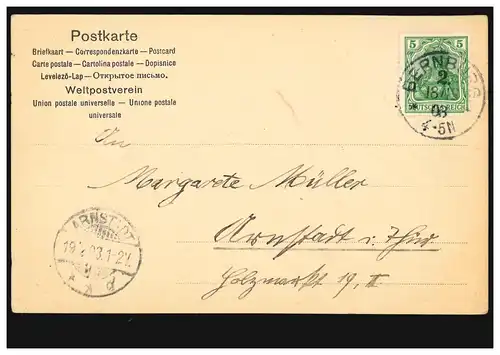 Postkarte
Briefkaart — Correspondenzkarte — Postcard
Carte postale — Cartolina postale — Dopisnice
Levelező-Lap — Открытое письмо.
Weltpostverein
Union postale universelle — Unione postale
universale
5 5
DEUTSCHES REICH
BERNBURG
2
4-5N
An
Margarete Müller
Arnstadt i. Thür.
Holzmarkt 19, II
ARNSTADT
1-2N